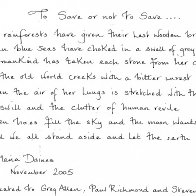 To Save or not to Save ....
rainforests have given their last wooden
blue seas have choked in a swell of grey
mankind has taken each stone from her
the old world creeks with a bitter
the air of her lungs is stretched with th
swill and the clutter of human
lines fill the sky and the moon wants
we all stand aside and let the earth
Maria Daines
November 2005
to Greg Allen, Paul Richmond and Steven